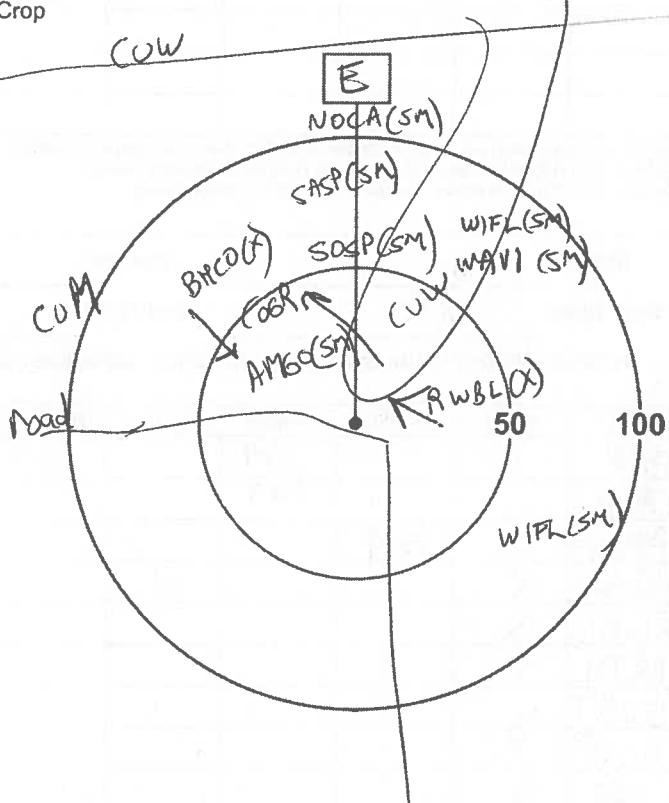 Crop
CUW
E
NOCA(SM)
SASP(SM)
WIFL(SM)
SOSP(SM)
WAVI (SM)
BHCO(X)
COGR
CUW
CUM
AMGO(SM)
RWBL(X)
Road
50
100
WIFL(SM)